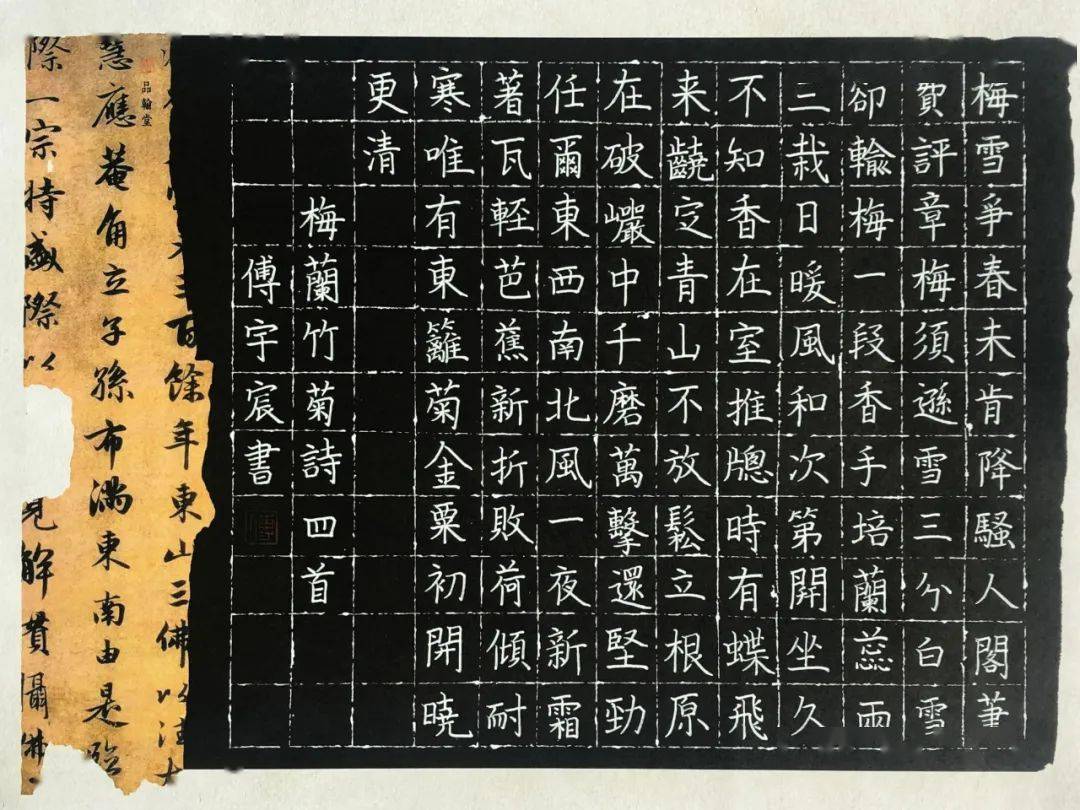 梅雪爭春未肯降騷人閣筆
費評章梅須遜雪三分白雪
卻輸梅一段香手培蘭蕊兩
三栽日暖風和次第開坐久
不知香在室推牕時有蝶飛
来定青山不放鬆立根原
在破巖中千磨萬擊還堅勁
任爾東西南北風一夜新霜
著瓦輕芭蕉新折敗荷傾耐
寒唯有東籬菊金粟初開曉
更清
梅蘭竹菊詩四首
傅宇宸書
品翰堂
三百餘年東山三佛以
慧應菴角立子孫布滿東南由是臨
際一宗特盛際以見解貫攝佛